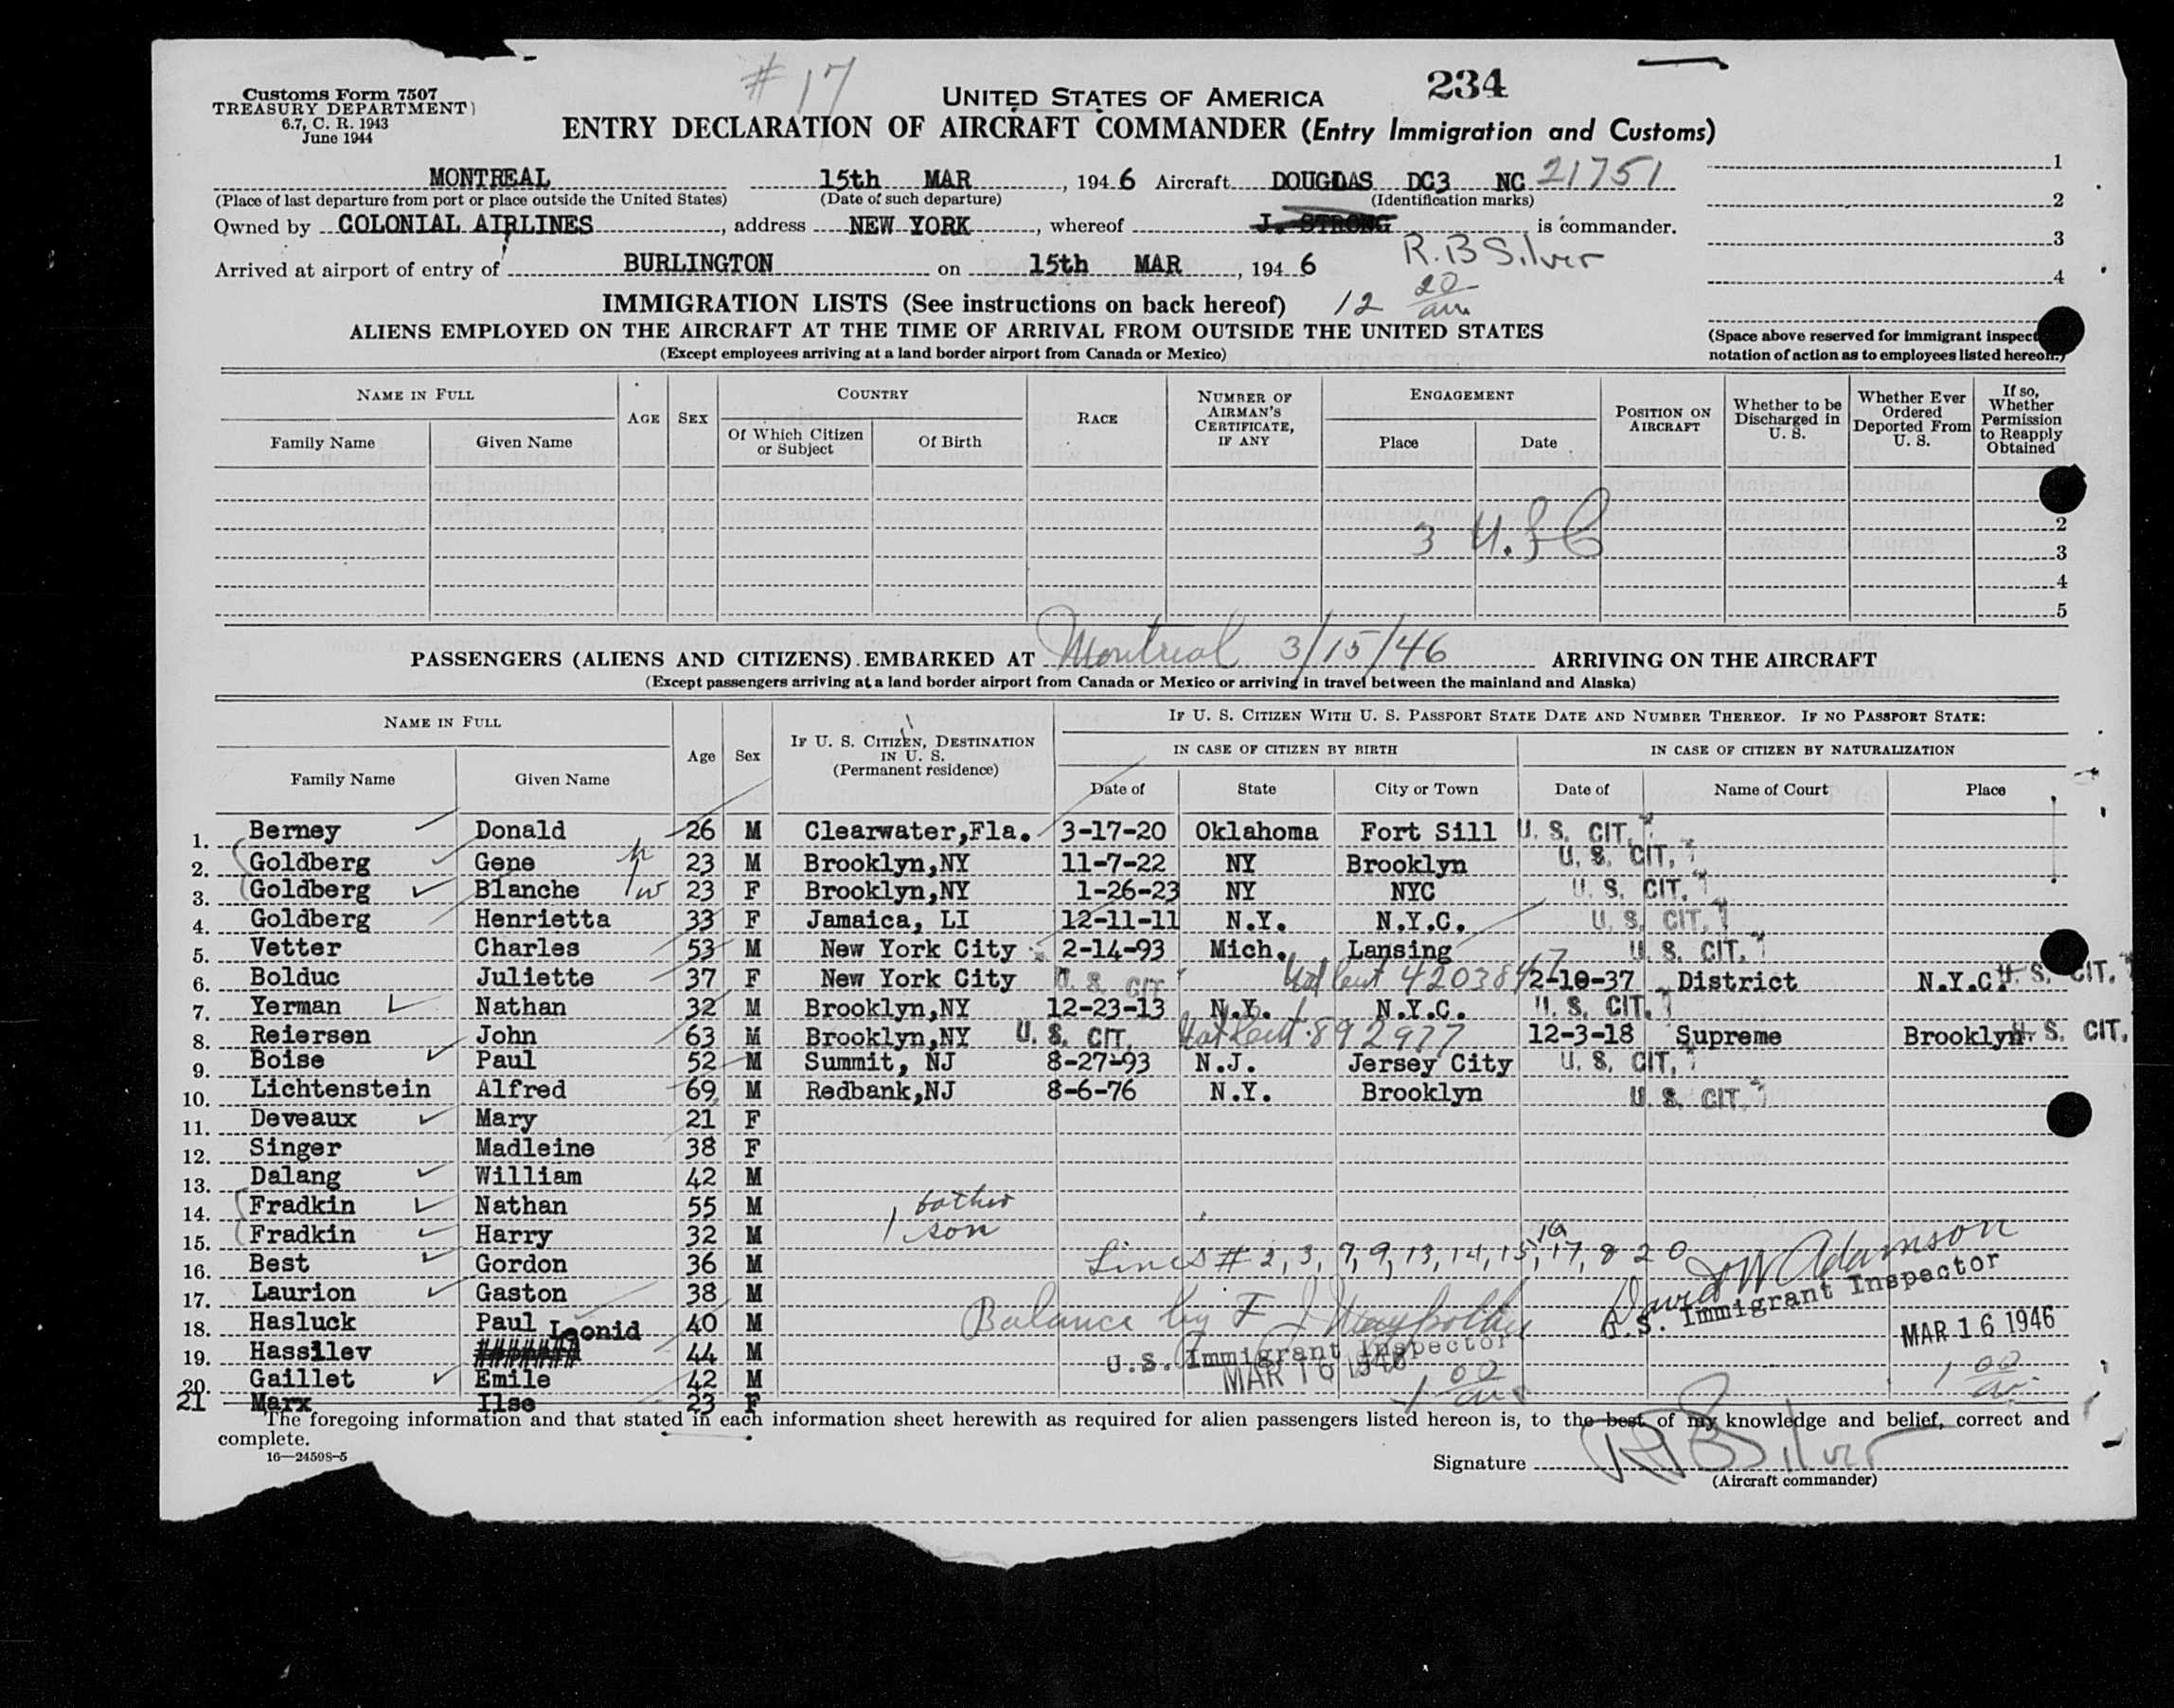 # 17
234
Customs Form 7507
TREASURY DEPARTMENT)
6.7, C. R. 1943
June 1944
UNITED STATES OF AMERICA
ENTRY DECLARATION OF AIRCRAFT COMMANDER (Entry Immigration and Customs)
MONTREAL 15th MAR , 194 6 Aircraft DOUGLAS DC3 NC 21751
(Place of last departure from port or place outside the United States) (Date of such departure) (Identification marks)
Owned by COLONIAL AIRLINES , address NEW YORK , whereof J. STRONG is commander.
R.B Silver
Arrived at airport of entry of BURLINGTON on 15th MAR , 194 6
1
2
3
4
12 20 am
IMMIGRATION LISTS (See instructions on back hereof)
ALIENS EMPLOYED ON THE AIRCRAFT AT THE TIME OF ARRIVAL FROM OUTSIDE THE UNITED STATES
(Except employees arriving at a land border airport from Canada or Mexico)
(Space above reserved for immigrant inspect
notation of action as to employees listed hereon.)
NAME IN FULL AGE SEX COUNTRY RACE NUMBER OF AIRMAN'S CERTIFICATE, IF ANY ENGAGEMENT POSITION ON AIRCRAFT Whether to be Discharged in U. S. Whether Ever Ordered Deported From U. S. If so, Whether Permission to Reapply Obtained
Family Name Given Name Of Which Citizen or Subject Of Birth Place Date
2
3 U.S C
3
4
5
PASSENGERS (ALIENS AND CITIZENS) EMBARKED AT Montreal 3/15/46 ARRIVING ON THE AIRCRAFT
(Except passengers arriving at a land border airport from Canada or Mexico or arriving in travel between the mainland and Alaska)
NAME IN FULL Age Sex IF U. S. CITIZEN, DESTINATION IN U. S. (Permanent residence) IF U. S. CITIZEN WITH U. S. PASSPORT STATE DATE AND NUMBER THEREOF. IF NO PASSPORT STATE:
IN CASE OF CITIZEN BY BIRTH IN CASE OF CITIZEN BY NATURALIZATION
Family Name Given Name Date of State City or Town Date of Name of Court Place
1. Berney Donald 26 M Clearwater,Fla. 3-17-20 Oklahoma Fort Sill U. S. CIT.
2. Goldberg Gene h 23 M Brooklyn,NY 11-7-22 NY Brooklyn U. S. CIT.
3. Goldberg Blanche w 23 F Brooklyn,NY 1-26-23 NY NYC U. S. CIT.
4. Goldberg Henrietta 33 F Jamaica, LI 12-11-11 N.Y. N.Y.C. U. S. CIT.
5. Vetter Charles 53 M New York City 2-14-93 Mich. Lansing U. S. CIT.
6. Bolduc Juliette 37 F New York City U. S. CIT Nat Cert 4203847 2-10-37 District N.Y.C. U. S. CIT.
7. Yerman Nathan 32 M Brooklyn,NY 12-23-13 N.Y. N.Y.C. U. S. CIT.
8. Reiersen John 63 M Brooklyn,NY U. S. CIT. Nat Cert 892977 12-3-18 Supreme Brooklyn U. S. CIT.
9. Boise Paul 52 M Summit, NJ 8-27-93 N.J. Jersey City U. S. CIT.
10. Lichtenstein Alfred 69 M Redbank,NJ 8-6-76 N.Y. Brooklyn U. S. CIT.
11. Deveaux Mary 21 F
12. Singer Madleine 38 F
13. Dalang William 42 M
14. Fradkin Nathan 55 M father
15. Fradkin Harry 32 M son
16. Best Gordon 36 M Lines # 2, 3, 7, 9, 13, 14, 15, 16 17, & 20 David W Adamson
17. Laurion Gaston 38 M U.S. Immigrant Inspector
18. Hasluck Paul 40 M Balance by F J MAR 16 1946
19. Hassilev Leonid 44 M U.S. Immigrant Inspector
20. Gaillet Emile 42 M MAR 16 1946 1 00 am 1 00 am
21 Marx Ilse 23 F
The foregoing information and that stated in each information sheet herewith as required for alien passengers listed hereon is, to the best of my knowledge and belief, correct and
complete.
16—24598-5
Signature R B Silver
(Aircraft commander)